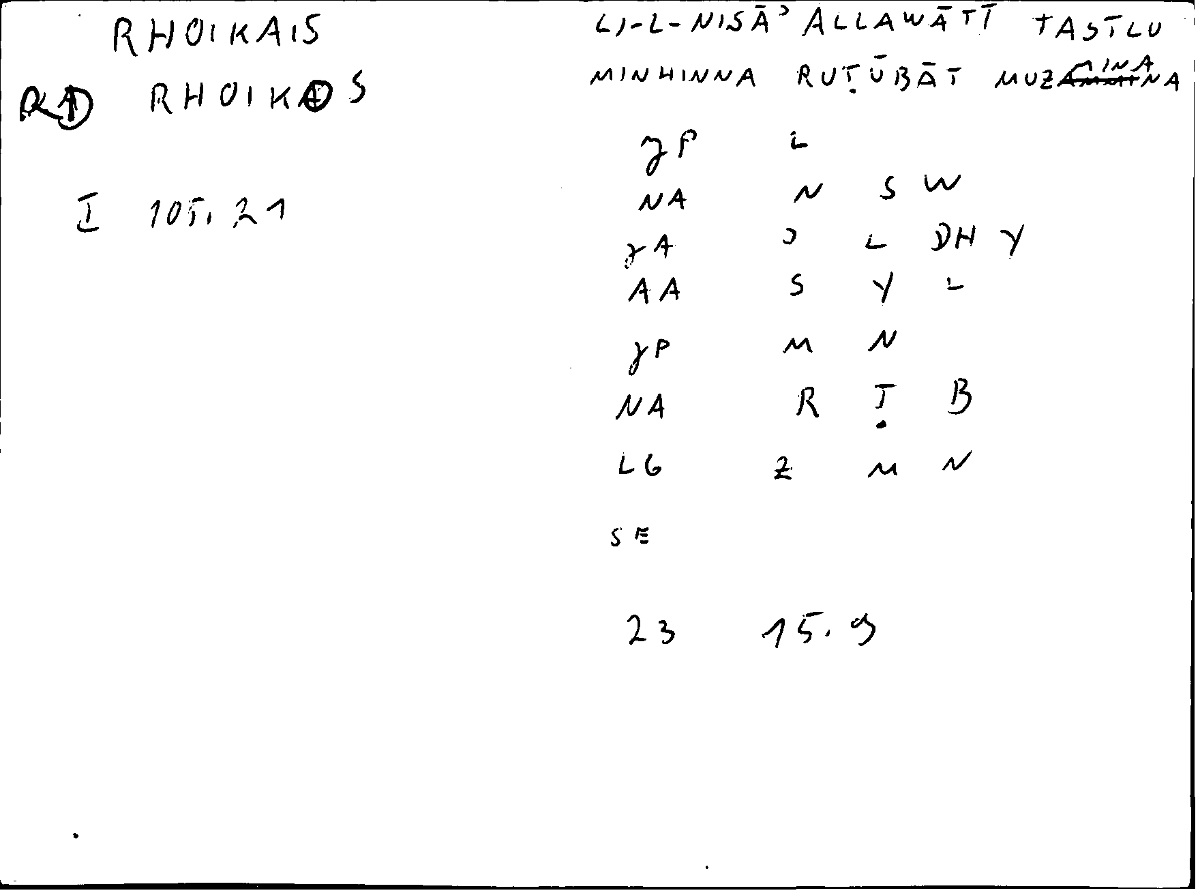 RHOIKAIS
RHOIKOS
I 105.21
LI-L-NISĀʾ ALLAWĀTĪ TASĪLU
MINHINNA RUṬŪBĀT MUZAMINA
P L
NA N S W
A ʾ L DH Y
AA S Y L
P M N
NA R Ṭ B
LG Z M N
SE
23 15.9